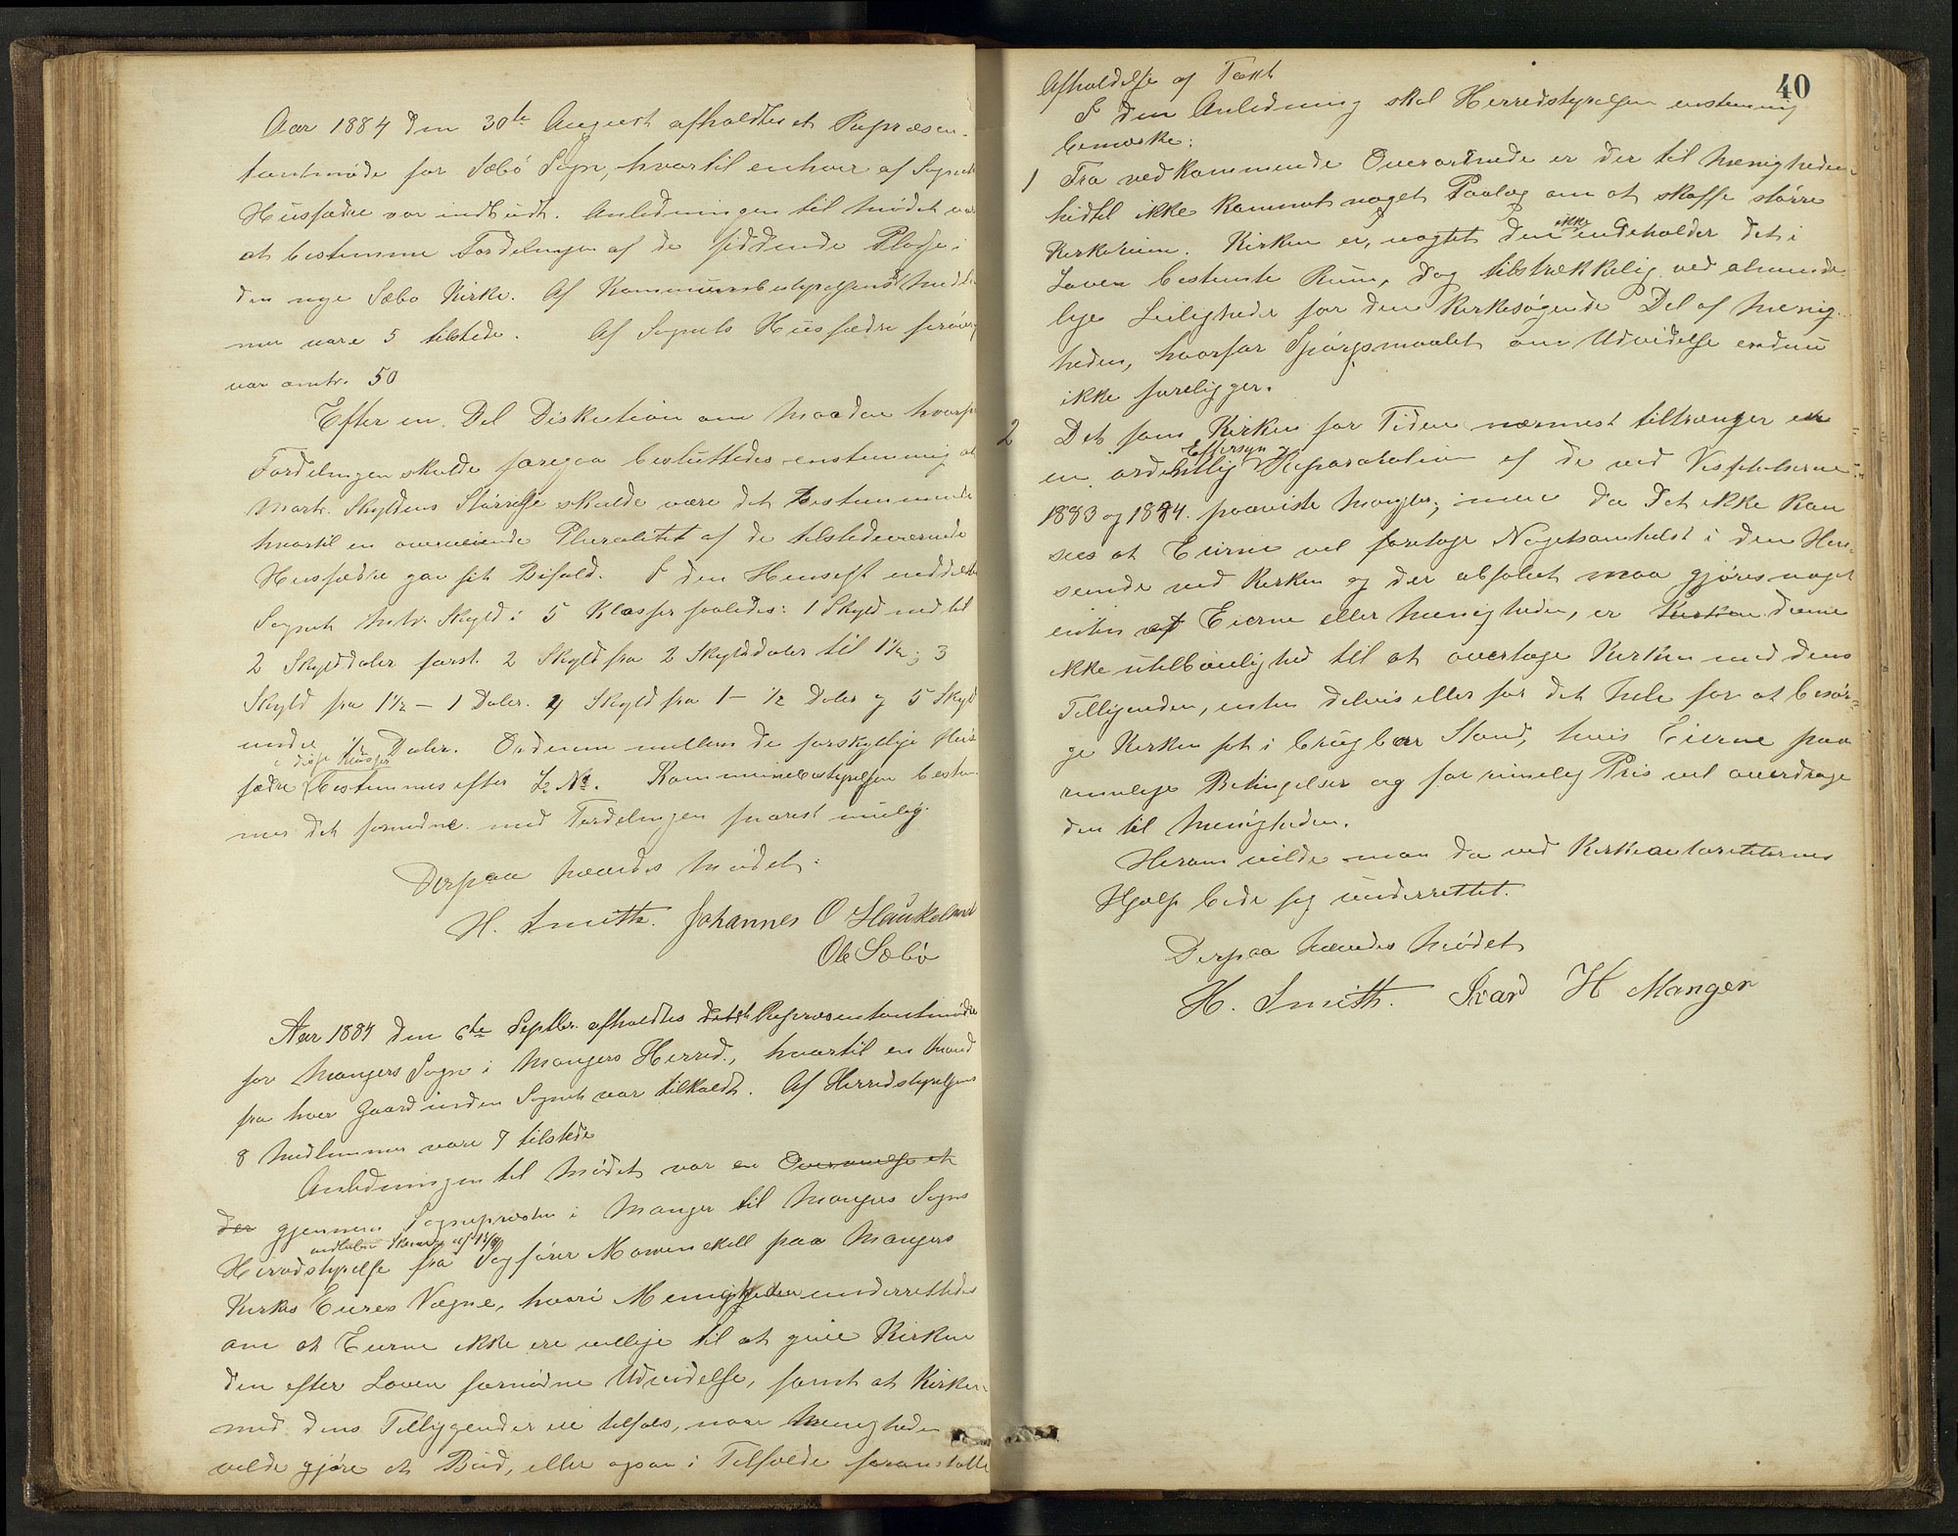 Aar 1884 den 30te August afholdtes et Repræsen-
tantmøde for Sæbø Sogn, hvortil enhver af Sognets
Husfædre var indbudt. Anledningen til Mødet var
at bestemme Fordelingen af de siddende Pladse i
den nye Sæbø Kirke. Af Kommunebestyrelsens 8 Medlem-
mer vare 5 tilstede. Af Sognets Husfædre forøvrigt
var omtr. 50
Efter en Del Diskution om Maaden hvorpaa
Fordelingen skulde foregaa besluttedes enstemmig at
Matr. Skyldens Størrelse skulde være det bestemmende
hvortil en overveiende Pluralitet af de tilstedeværende
Husfædre gav sit Bifald. I den Henseft inddeltes
Sognets Matr. Skyld i 5 Klasser saaledes: 1 Skyld ned til
2 Skylddaler først. 2 Skyld fra 2 Skylddaler til 1½; 3
Skyld fra 1½ – 1 Daler. 4 Skyld fra 1 – ½ Daler og 5 Skyld
under ½ Daler. Ordenen mellem de forskjellige Hus
i disse Klasser
fædre bestemmes efter L. No. Kommunebestyrelsen bestem-
mer det fornødne med Fordelingen snarest muligt.
Derpaa hævedes Mødet.
H. Smith. Johannes O Haukeland
Ole Sæbø
Aar 1884 den 6te Septbr. afholdtes Repræsentantmøde
for Mangers Sogn i Mangers Herred, hvortil en Mand
fra hver Gaard inden Sognet var tilkaldt. Af Herredstyrelsens
8 Medlemmer vare 7 tilstede
Anledningen til Mødet var en Overveielse et
der gjennem Sognepresten i Manger til Mangers Sogns
indløben Skrivelse af
Herredstyrelse fra Sagfører Mowinckell paa Mangers
Kirkes Eieres Vegne, hvori Menigheden underrettedes
om at Eierne ikke ere villige til at give Kirken
den efter Loven fornødne Udvidelse, samt at Kirken
med dens Tilliggender ere tilfals, naar Menigheden
vilde gjøre et Bud, eller ogsaa i Tilfælde foranstalte
40
Afholdelse af Taxt
I den Anledning skal Herredstyrelsen enstemmig
bemærke:
1 Fra vedkommende Overordnede er der til Menigheden
hidtil ikke kommet noget Paalæg om at skaffe større
ikke
Kirkerum. Kirken er, uagtet den indeholder det i
Loven bestemte Rum, dog tilstrækkelig ved alminde-
lige Leiligheder for den Kirkesøgende Del af Menig-
heden, hvorfor Spørgsmaalet om Udvidelse endnu
ikke foreligger.
2 Det som Kirken for Tiden nærmest tiltrænger er
Eftersyn og
en ordentlig Reparatation af de ved Visitatserne
1883 og 1884 paaviste Mangler; men da det ikke kan
sees at Eierne vil foretage Nogetsomhelst i den Hen-
seende ved Kirken og der absolut maa gjøres noget
enten af Eierne eller Menigheden, er Kirken denne
ikke utilbøielighed til at overtage Kirken med dens
Tilligenden, enten delvis eller for det Hele for at besør-
ge Kirken sat i brugbar Stand, hvis Eierne paa
rimelige Betingelser og for rimelig Pris vil overdrage
den til Menigheden.
Herom vilde man da ved Kirkeautoriteternes
Hjælp bede sig underrettet.
Derpaa hævedes Mødet
H. Smith. Ivar H Manger